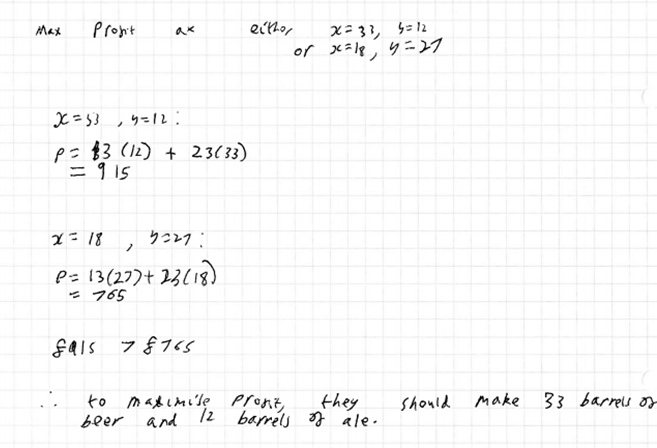 Max Profit at either x=33, y=12
or x=18, y=27
x=33, y=12:
P= 13(12) + 23(33)
= 915
x= 18, y=27:
P= 13(27)+23(18)
= 765
£915 > £765
∴ to maximise profit, they should make 33 barrels of
beer and 12 barrels of ale.